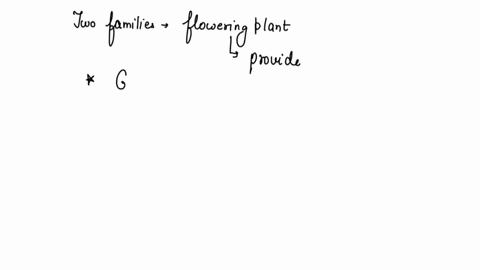 Two families → flowering plant
↳ provide
* G